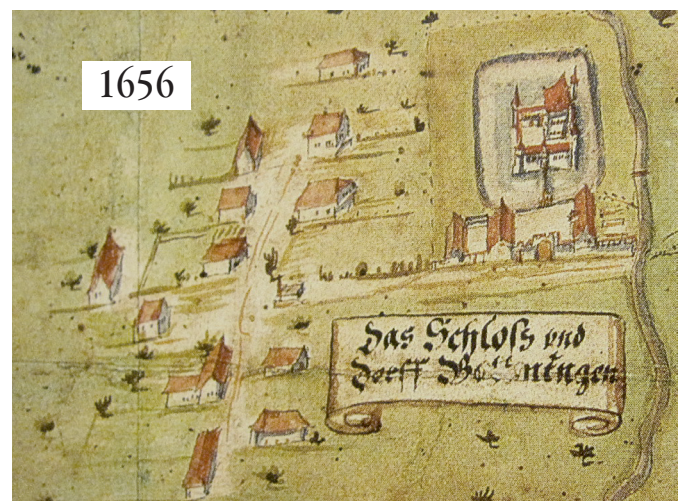 1656
Das Schloß vnd
Dorff Bottmingen